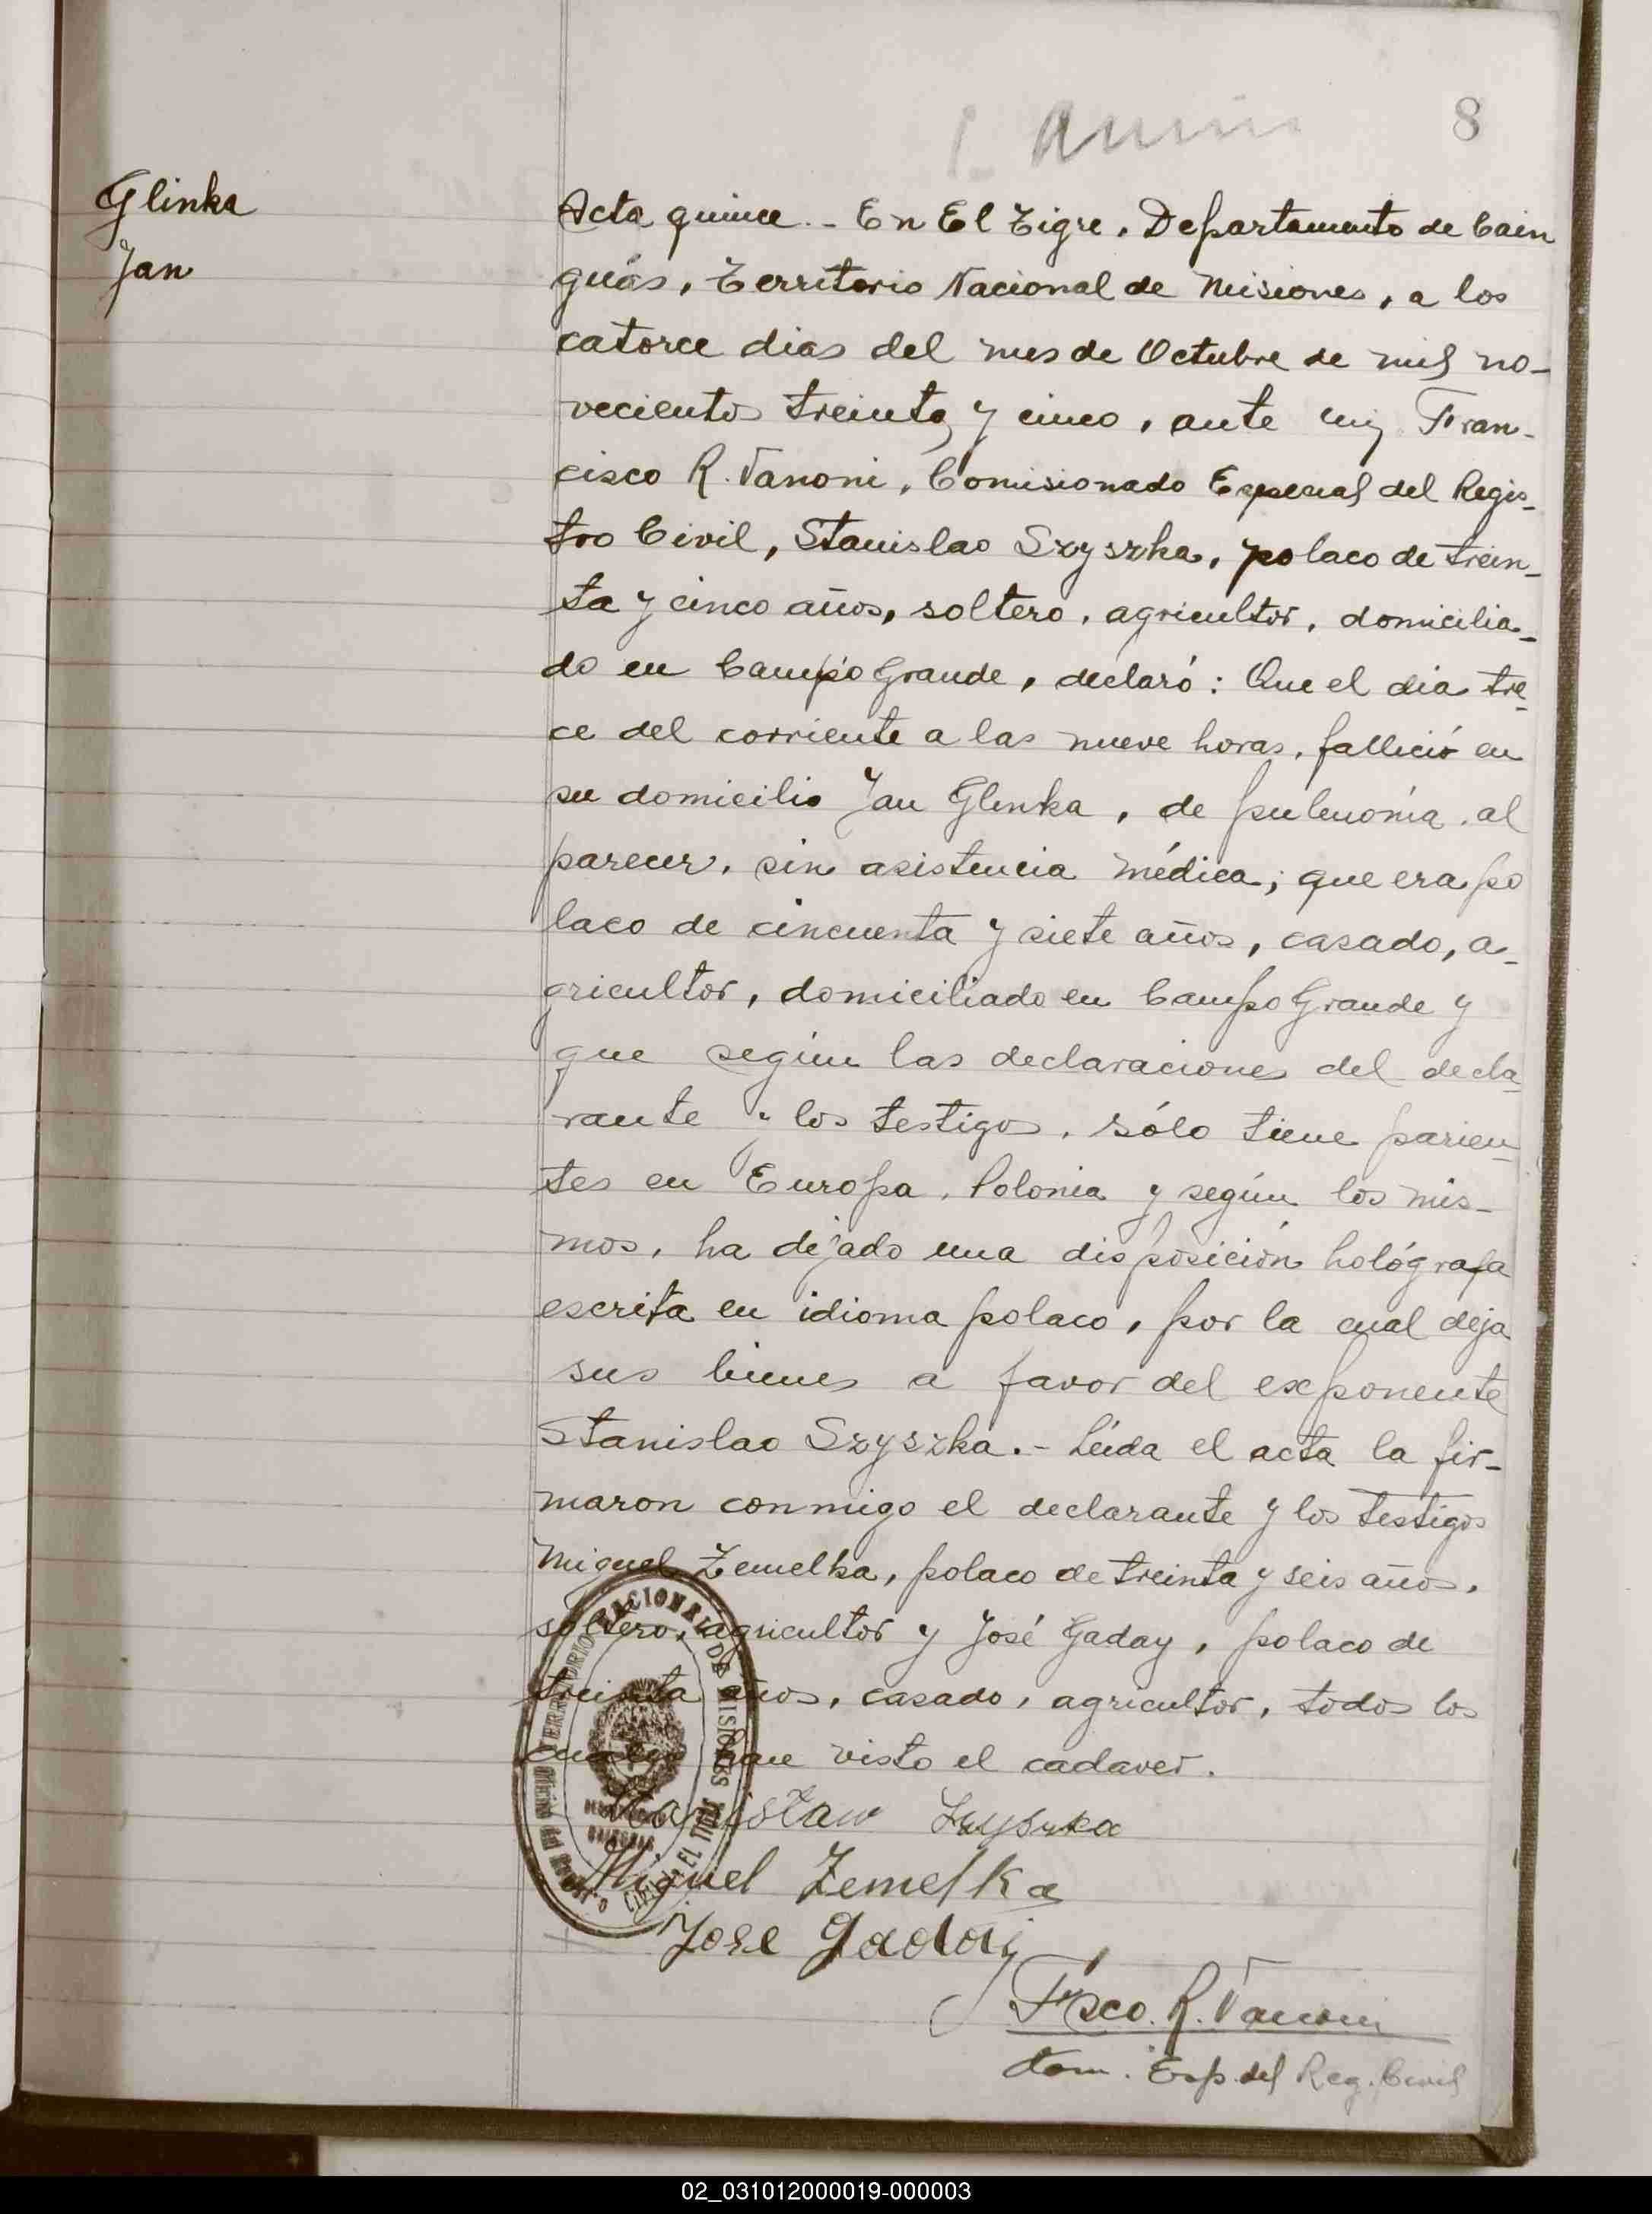 8
Glinka
Jan
Acta quince.- En El Tigre, Departamento de Cain
guás, Territorio Nacional de Misiones, a los
catorce dias del mes de Octubre de mil no-
vecientos treinta y cinco, ante mi, Fran-
cisco R. Vanoni, Comisionado Especial del Regis-
tro Civil, Stanislao Szyszka, polaco de trein-
ta y cinco años, soltero, agricultor, domicilia-
do en Campo Grande, declaró: Que el dia tre-
ce del corriente a las nueve horas, falleció en
su domicilio Jan Glinka, de pulmonía, al
parecer, sin asistencia médica; que era po
laco de cincuenta y siete años, casado, a-
gricultor, domiciliado en Campo Grande y
que según las declaraciones del decla-
rante y los testigos, sólo tiene parien-
tes en Europa, Polonia y según los mis-
mos, ha dejado una disposición hológrafa
escrita en idioma polaco, por la cual deja
sus bienes a favor del exponente
Stanislao Szyszka.- Leída el acta la fir-
maron conmigo el declarante y los testigos
Miguel Zemelka, polaco de treinta y seis años,
soltero, agricultor y José Gaday, polaco de
treinta años, casado, agricultor, todos los
cuales han visto el cadaver.
Stanisław Szyszka
Miguel Zemelka
Jose Gadaj
Fsco. R. Vanoni
Com. Esp. del Reg. Civil
TERRITORIO NACIONAL DE MISIONES
Oficina del Registro Civil EL TIGRE
02_031012000019-000003